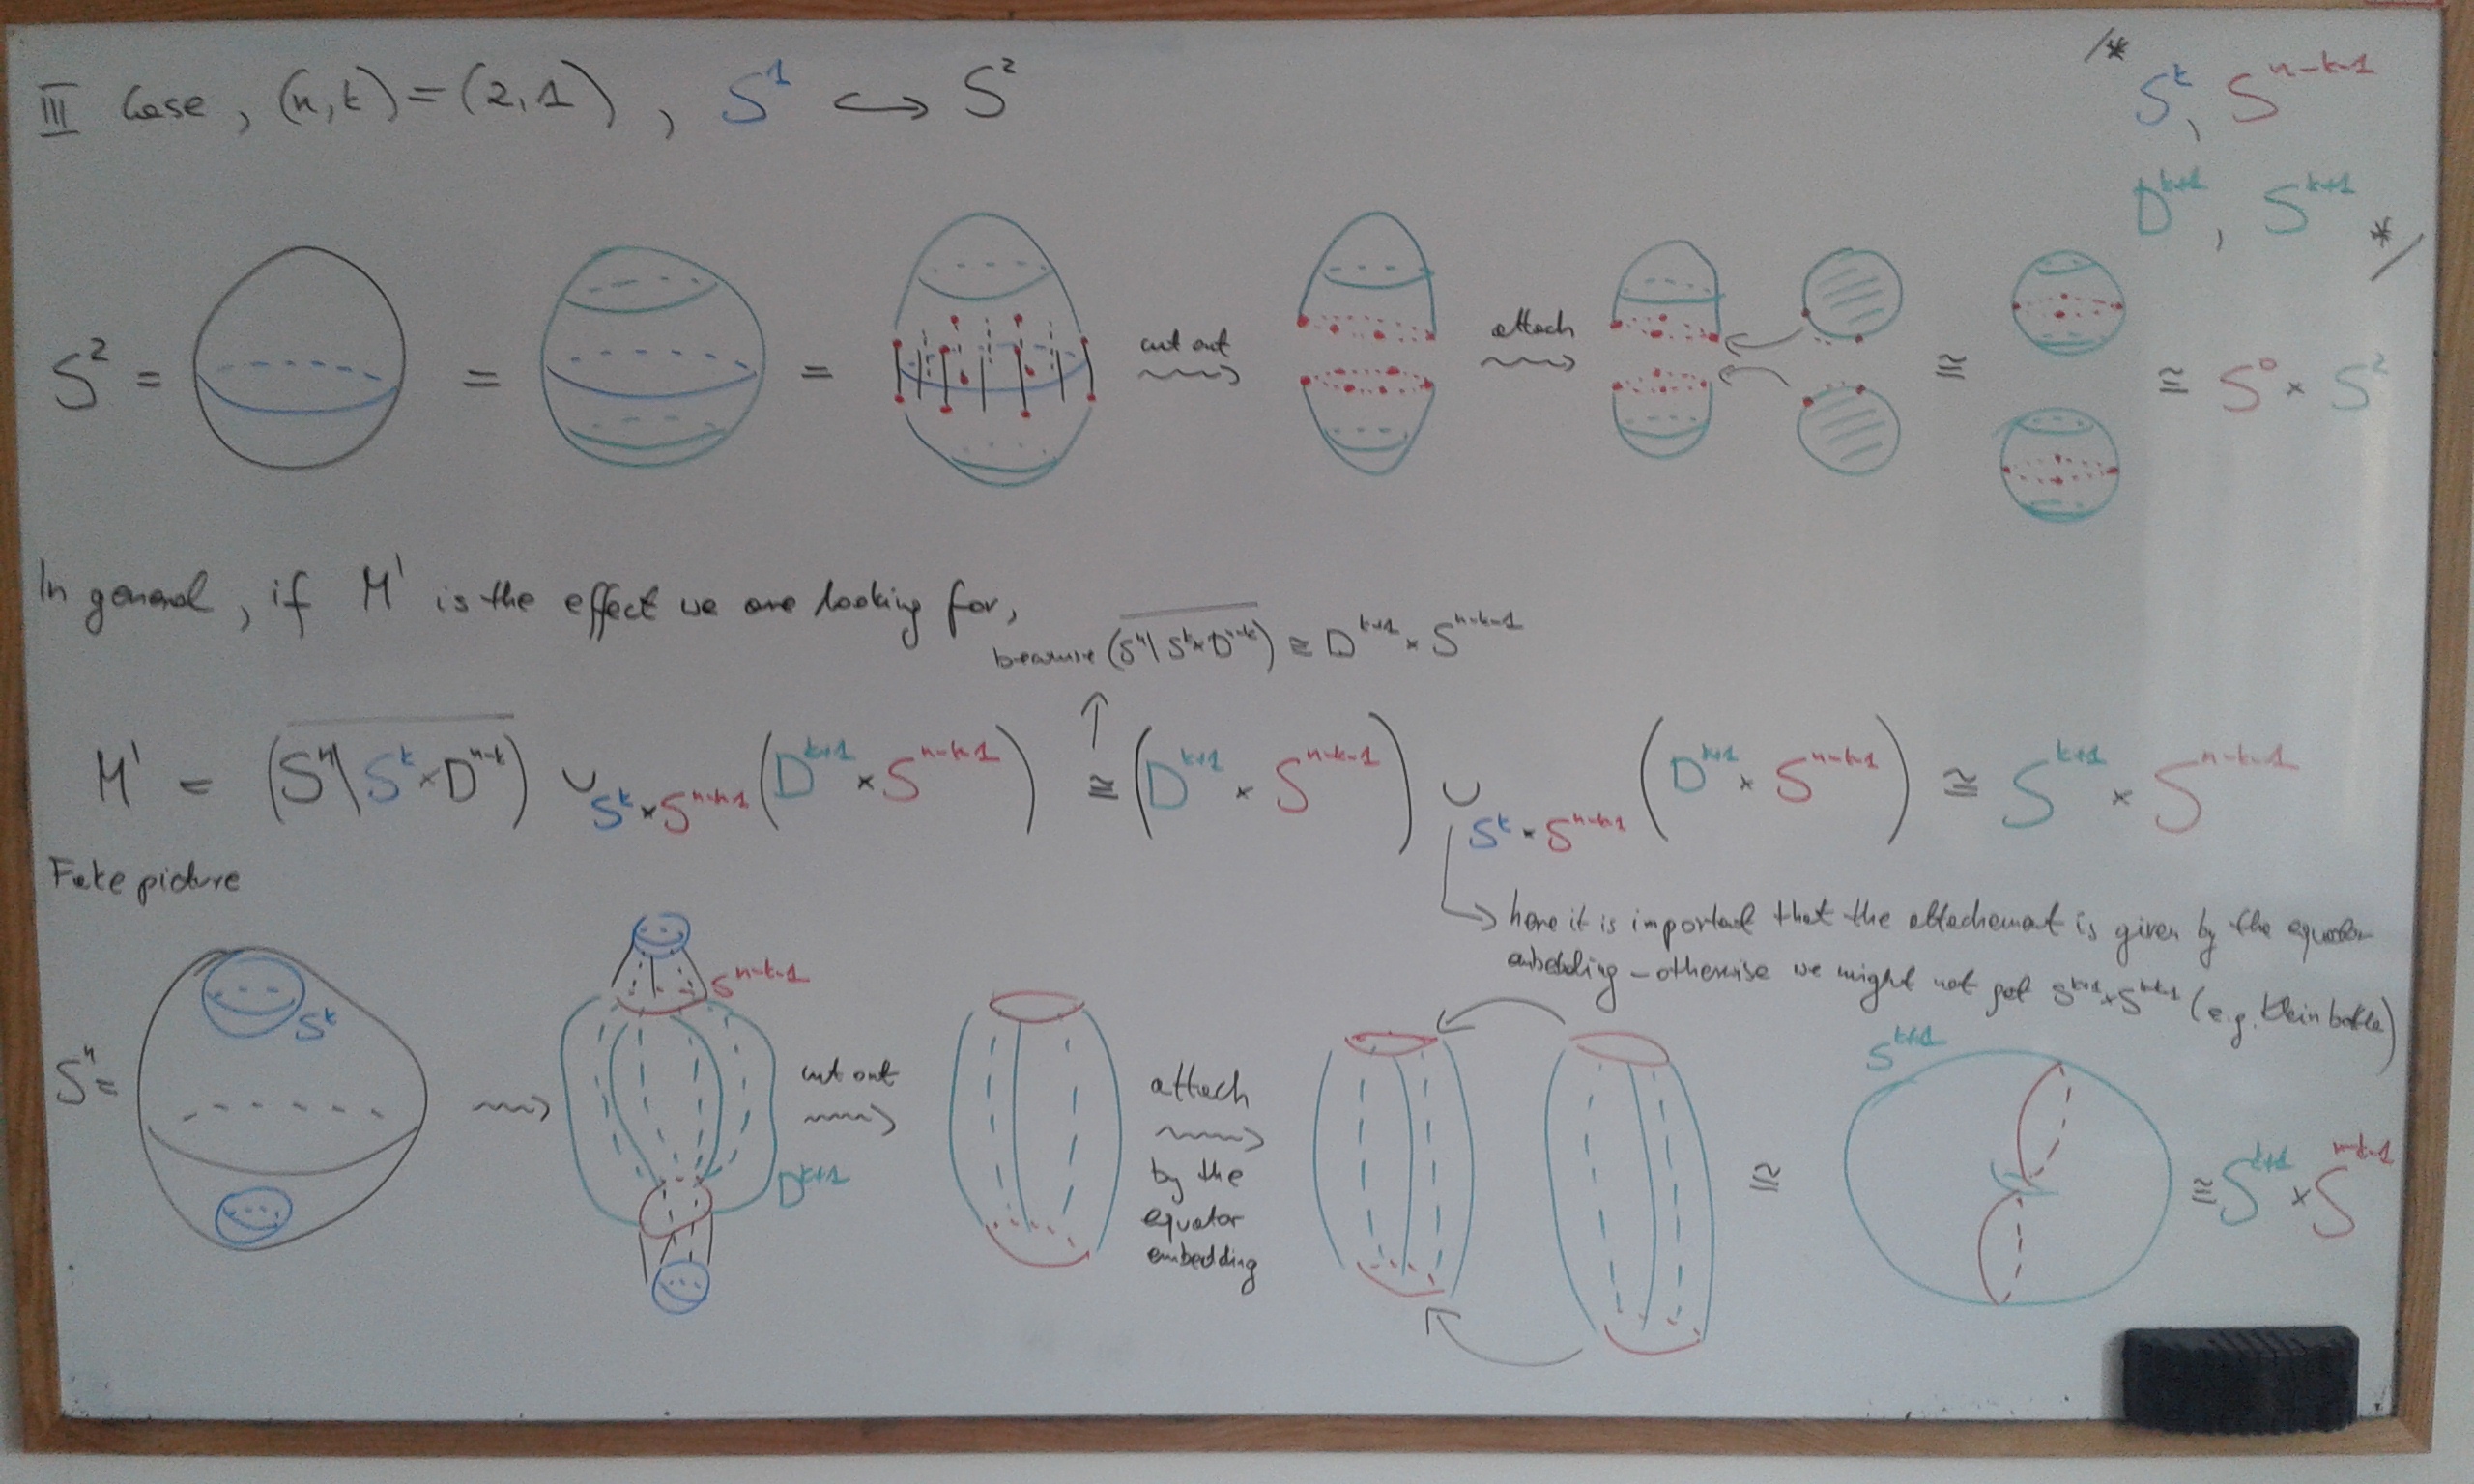 III Case, (n,k)=(2,1), S¹ ↪ S²
/* S^k, S^{n-k-1}
D^{k+1}, S^{k+1} */
S² = = = cut out ⇝ attach ⇝ ≅ ≅ S⁰ × S²
In general, if M' is the effect we are looking for,
because \overline{(S^n \ S^k × D^{n-k})} ≅ D^{k+1} × S^{n-k-1}
↑
M' = \overline{(S^n \ S^k × D^{n-k})} ∪_{S^k × S^{n-k-1}} (D^{k+1} × S^{n-k-1}) ≅ (D^{k+1} × S^{n-k-1}) ∪_{S^k × S^{n-k-1}} (D^{k+1} × S^{n-k-1}) ≅ S^{k+1} × S^{n-k-1}
Fake picture
↳ here it is important that the attachement is given by the equator
embedding – otherwise we might not get S^{k+1} × S^{n-k-1} (e.g. Klein bottle)
S^n = S^k
⇝
S^{n-k-1}
D^{k+1}
cut out
⇝
attach
⇝
by the
equator
embedding
≅
S^{k+1}
≅ S^{k+1} × S^{n-k-1}